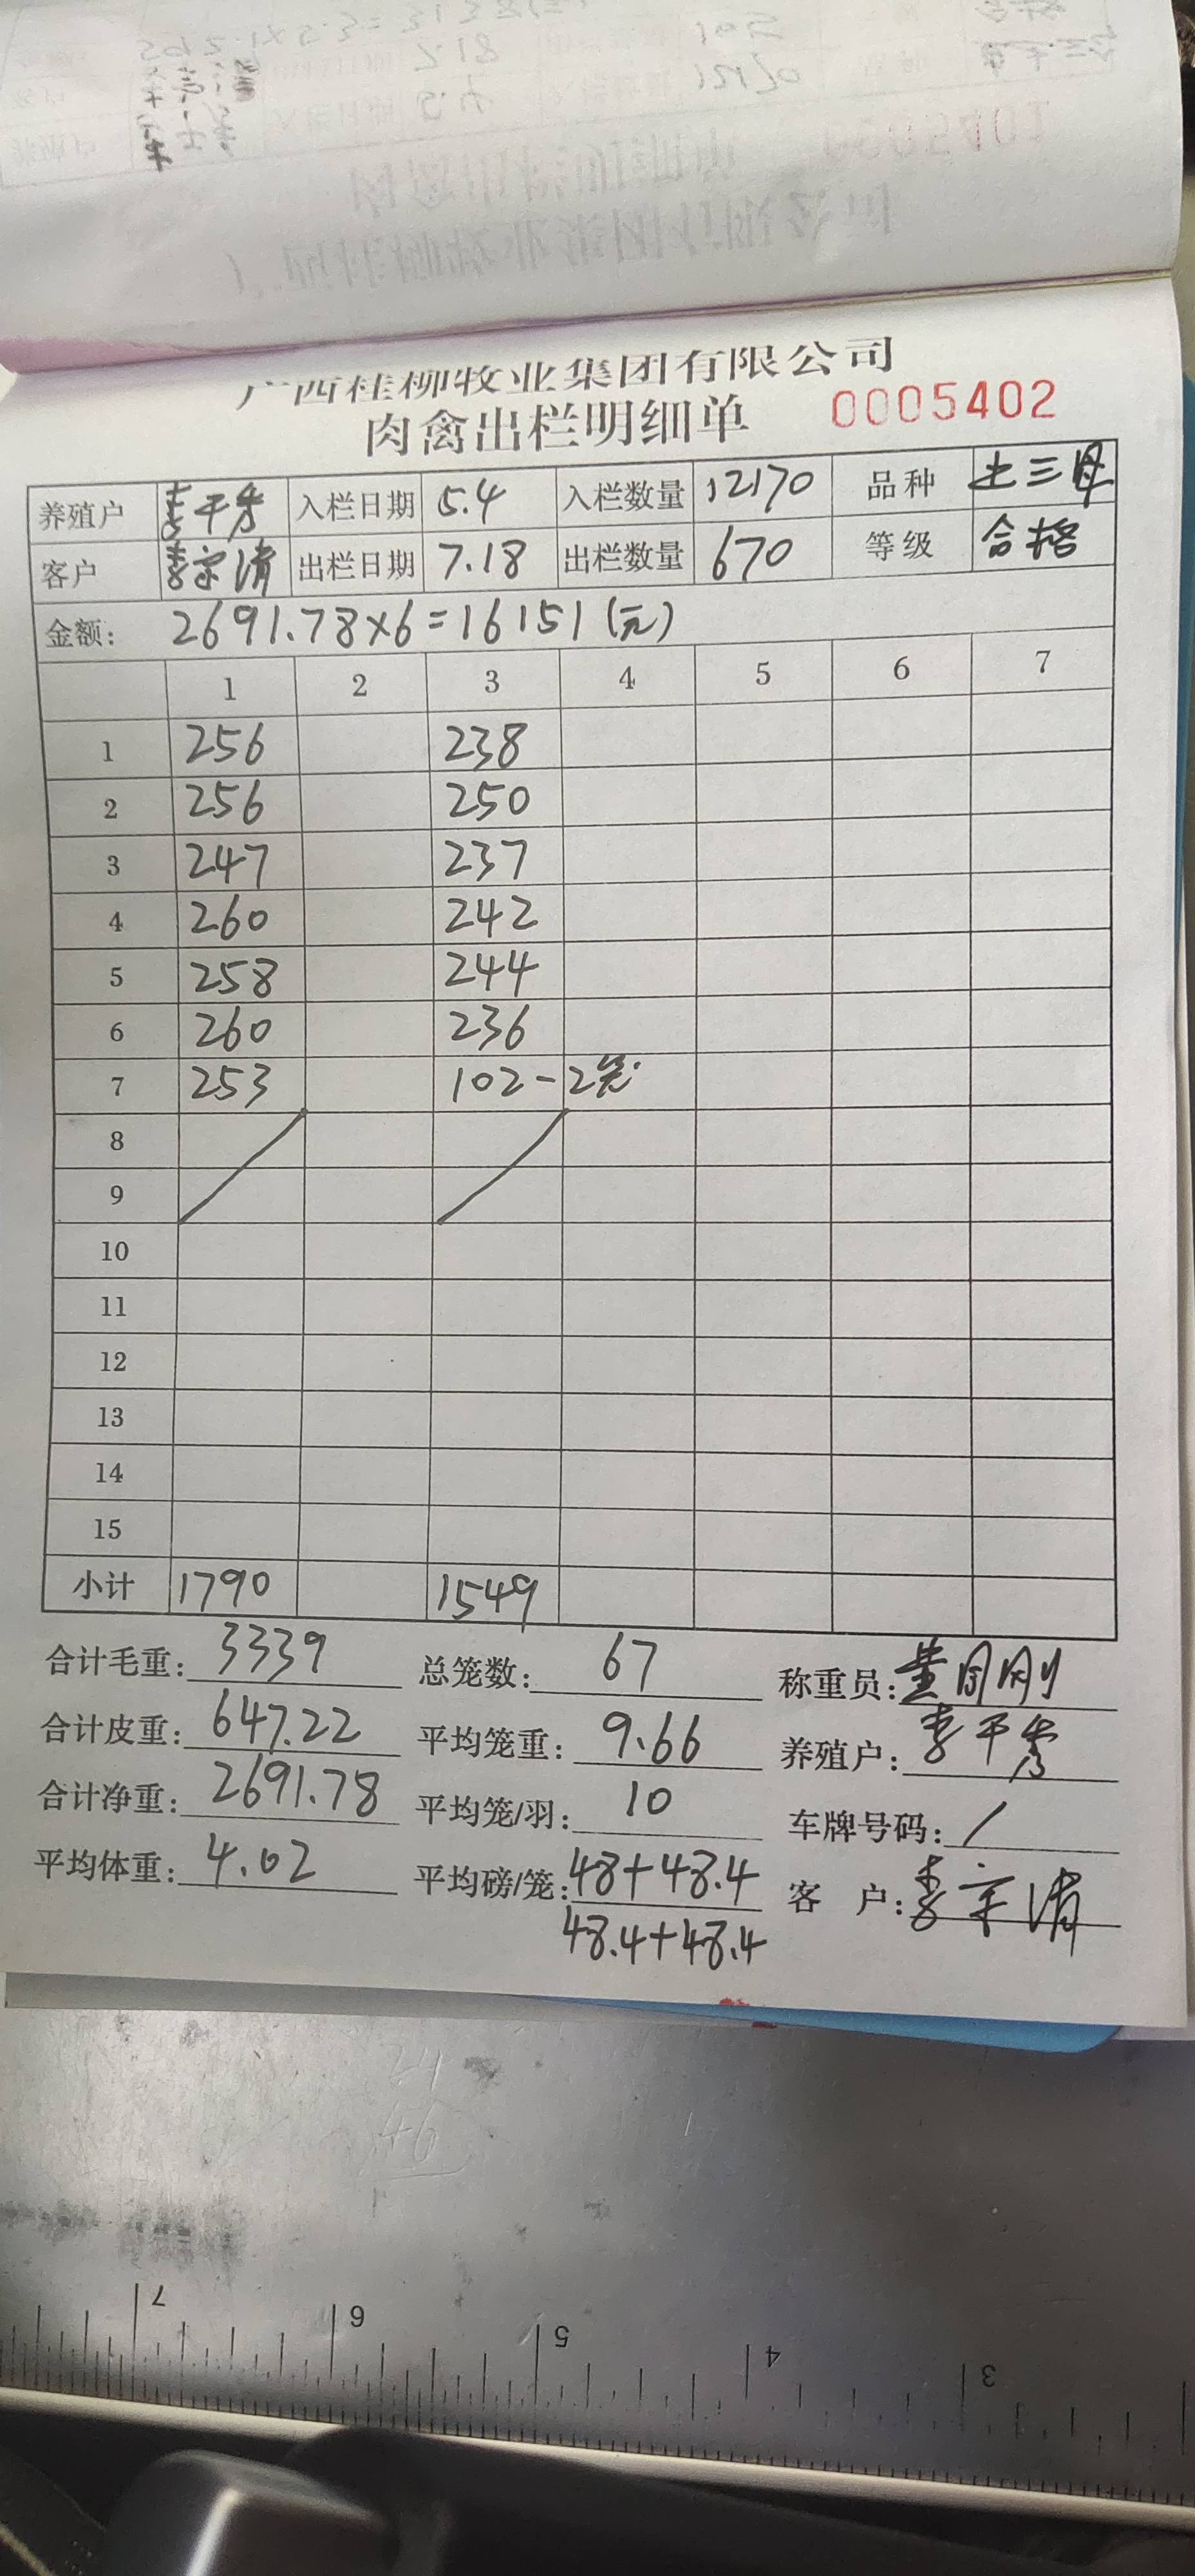 广西桂柳牧业集团有限公司
肉禽出栏明细单 0005402
养殖户 李干秀 入栏日期 5.4 入栏数量 12170 品种 土三母
客户 李宗清 出栏日期 7.18 出栏数量 670 等级 合格
金额: 2691.78×6=16151(元)
1 2 3 4 5 6 7
1 256 238
2 256 250
3 247 237
4 260 242
5 258 244
6 260 236
7 253 102-2笼
8
9
10
11
12
13
14
15
小计 1790 1549
合计毛重: 3339 总笼数: 67 称重员:
合计皮重: 647.22 平均笼重: 9.66 养殖户: 李干秀
合计净重: 2691.78 平均笼/羽: 10 车牌号码: /
平均体重: 4.02 平均磅/笼: 48+48.4 客 户: 李宗清
48.4+48.4
24
46
7 6 5 4 3